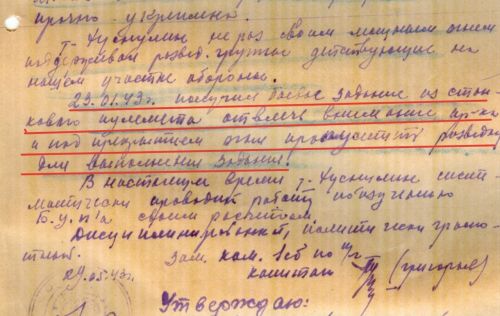 прочно укреплена.
Т. Хуснулин не раз своим мощным огнем
поддерживал развед. группы действующие на
нашем участке обороны.
29.01.43г. получил боевое задание из стан-
кового пулемета отвлечь внимание пр-ка
и под прикрытием огня пропустить разведку
для выполнения задания.
В настоящее время т. Хуснулин систе-
матически проводит работу по изучению
Б.У.П'а своим расчетом.
Дисциплинированный, политически грамо-
тный.
Зам. ком. 1сб по п/ч
29.05.43г. капитан (Григорьев)
Утверждаю: